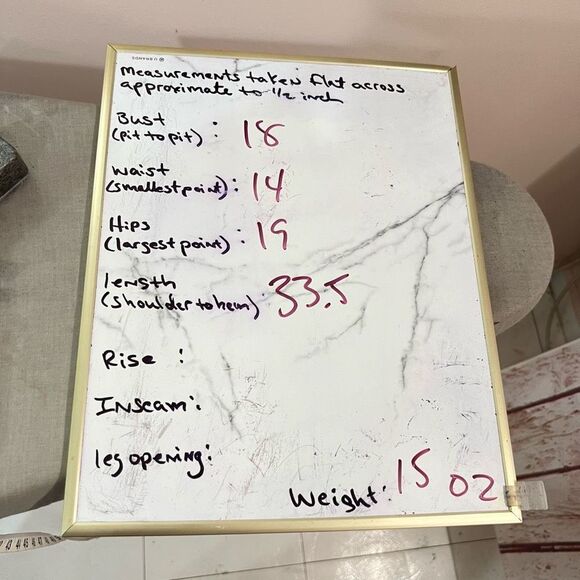 measurements taken flat across
approximate to 1/2 inch
Bust
(pit to pit) : 18
waist
(smallest point) : 14
Hips
(largest point) : 19
length
(shoulder to hem) : 33.5
Rise :
Inseam :
leg opening :
Weight : 15 oz